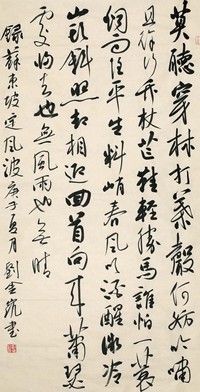 莫聽穿林打葉聲何妨吟嘯
且徐行竹杖芒鞋輕勝馬誰怕一蓑
烟雨任平生料峭春風吹酒醒微冷
山頭斜照却相迎回首向來蕭瑟
處歸去也無風雨也無晴
錄蘇東坡定風波庚子夏月劉金書